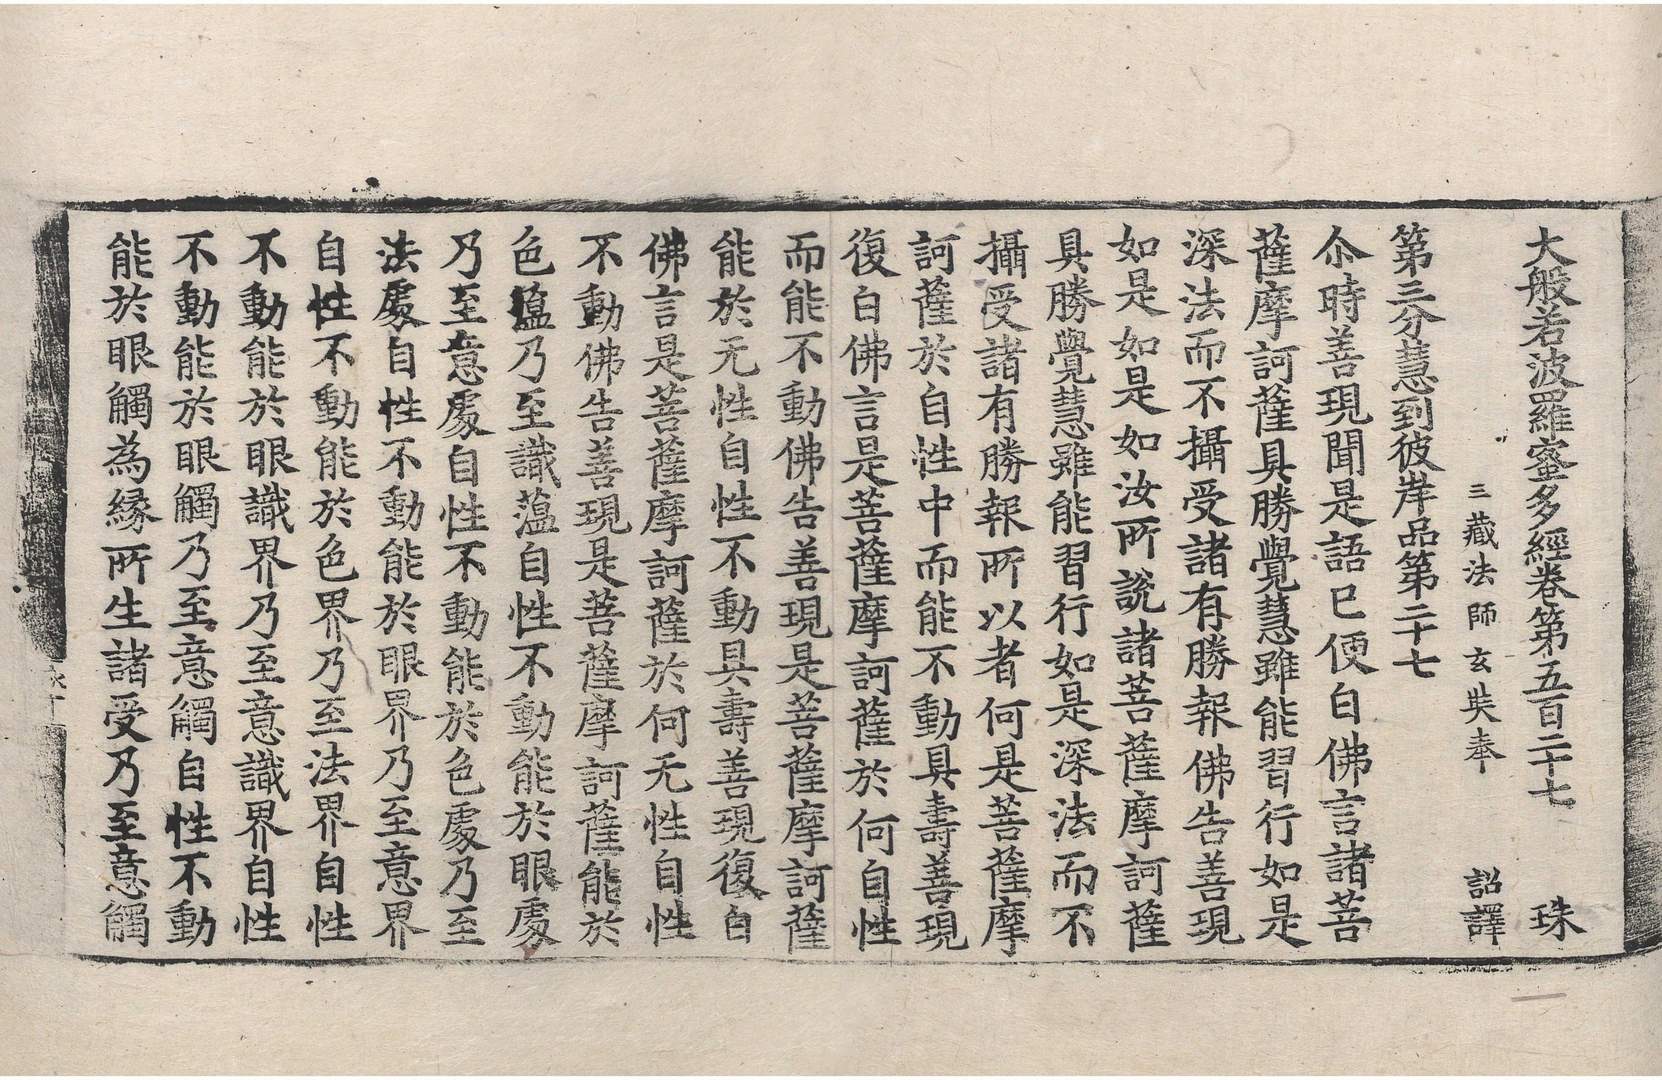 大般若波羅蜜多經卷第五百二十七　珠
三藏法師玄奘奉　詔譯
第三分慧到彼岸品第二十七
尒時善現聞是語已便白佛言諸菩
薩摩訶薩具勝覺慧雖能習行如是
深法而不攝受諸有勝報佛告善現
如是如是如汝所說諸菩薩摩訶薩
具勝覺慧雖能習行如是深法而不
攝受諸有勝報所以者何是菩薩摩
訶薩於自性中而能不動具壽善現
復白佛言是菩薩摩訶薩於何自性
而能不動佛告善現是菩薩摩訶薩
能於无性自性不動具壽善現復白
佛言是菩薩摩訶薩於何无性自性
不動佛告善現是菩薩摩訶薩能於
色蘊乃至識蘊自性不動能於眼處
乃至意處自性不動能於色處乃至
法處自性不動能於眼界乃至意界
自性不動能於色界乃至法界自性
不動能於眼識界乃至意識界自性
不動能於眼觸乃至意觸自性不動
能於眼觸為緣所生諸受乃至意觸